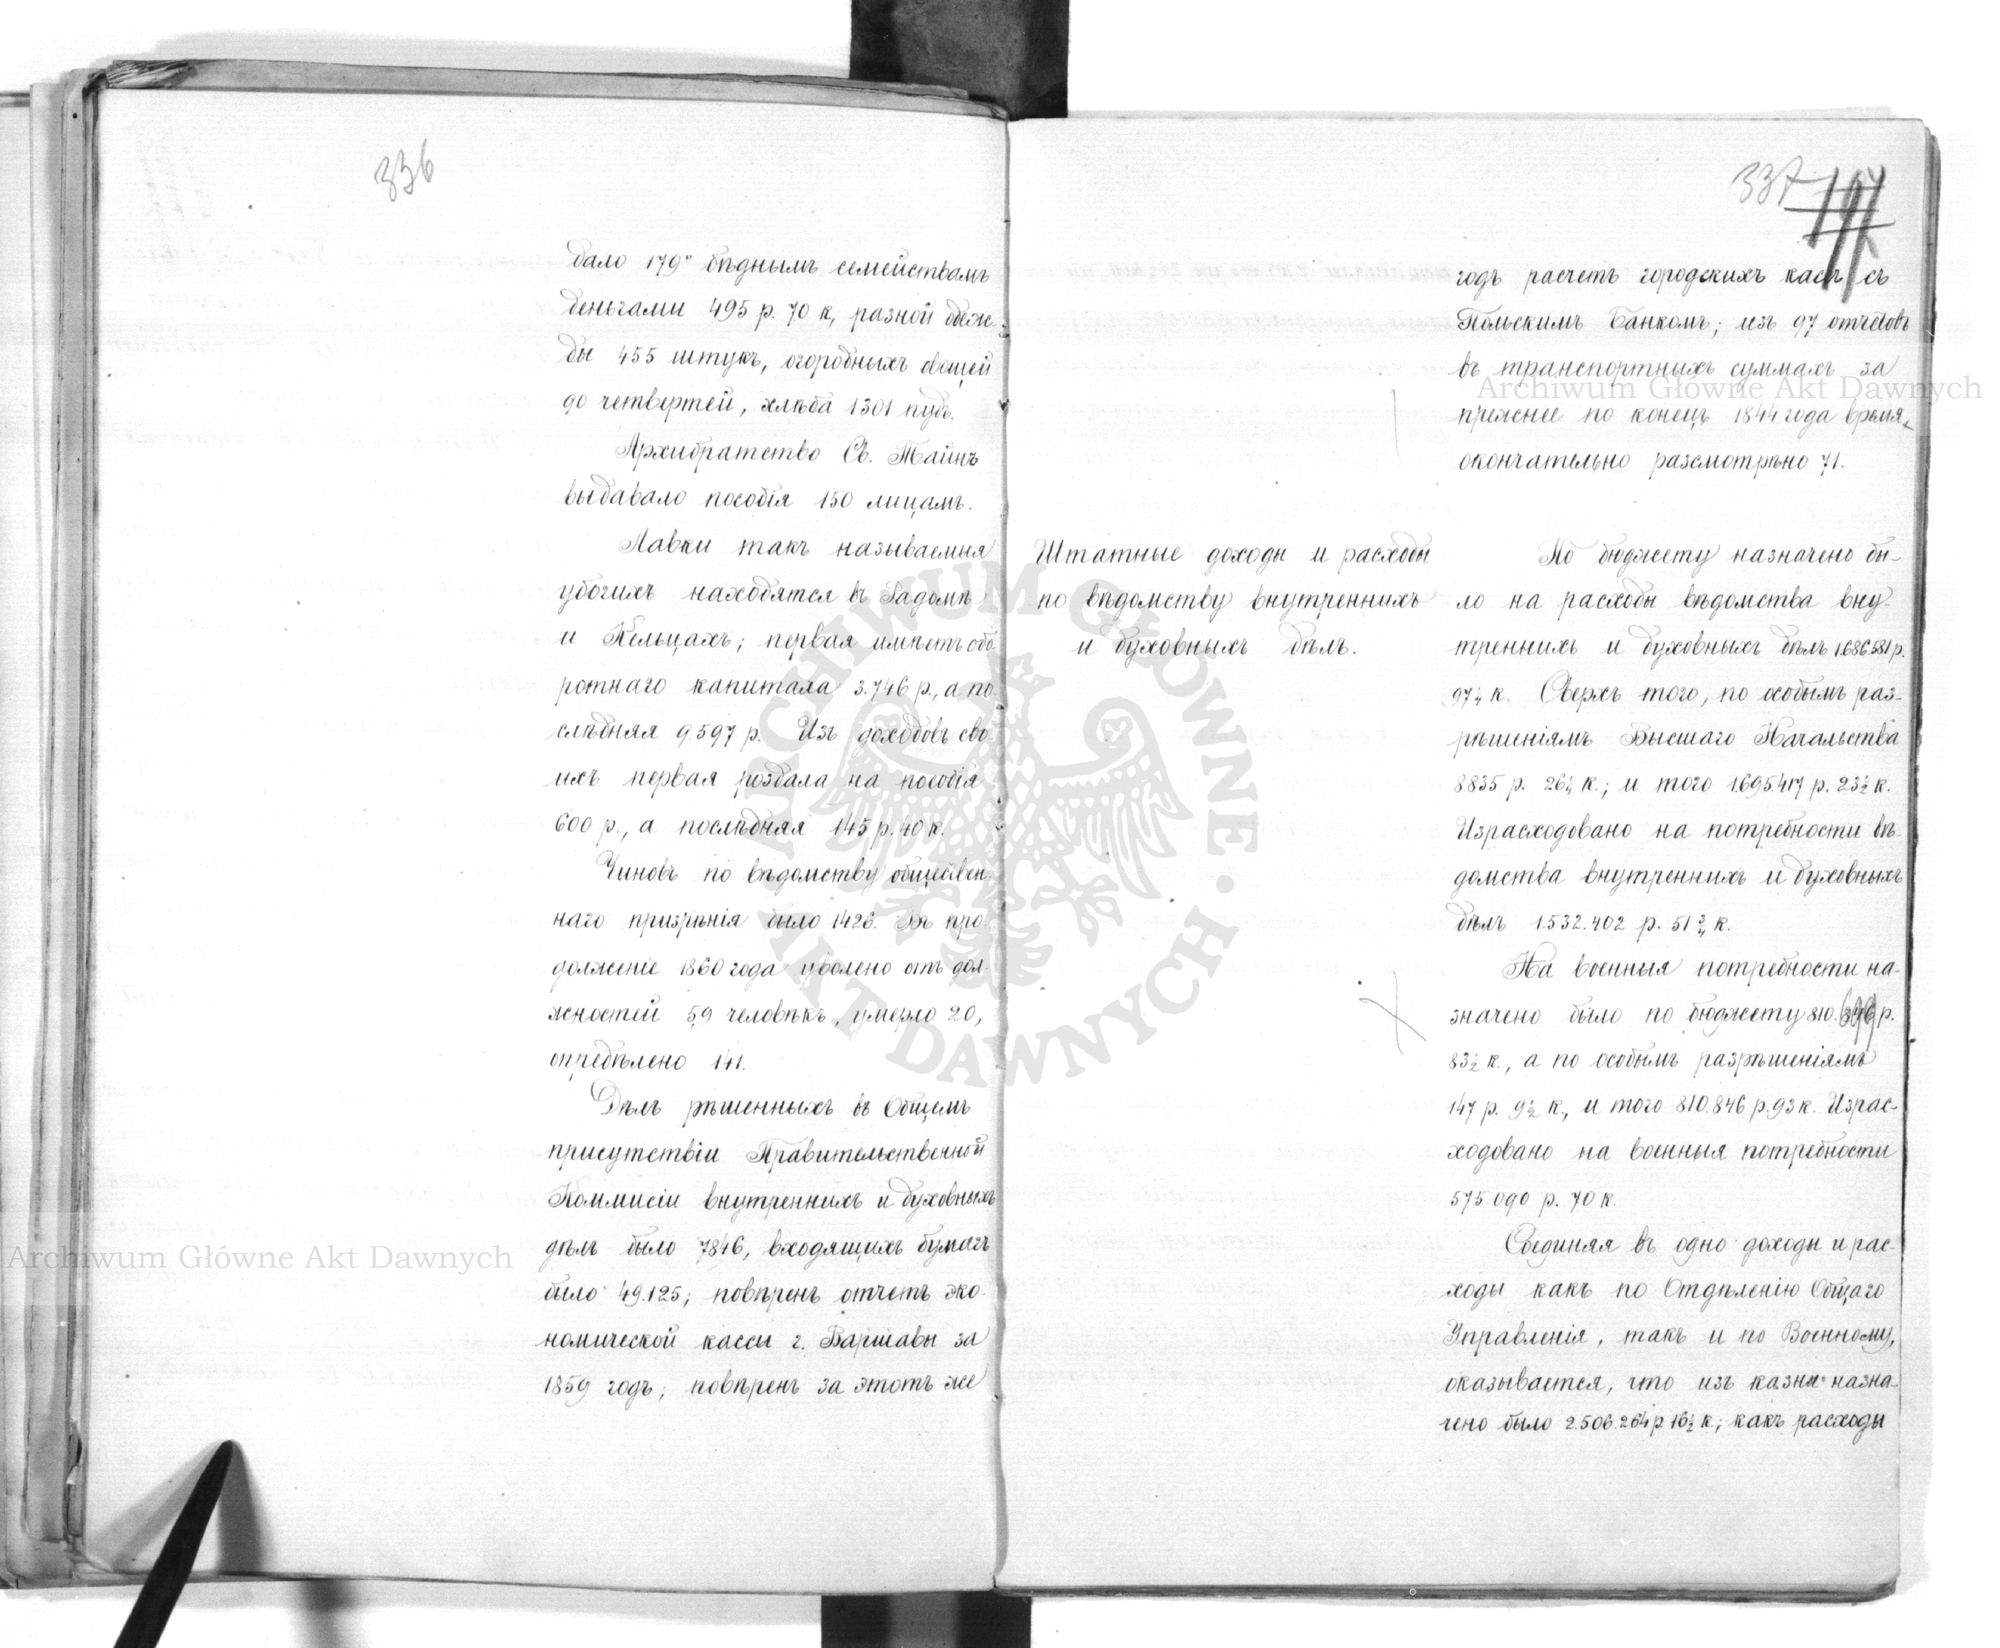 336
дало 179 бѣднымъ семействамъ
деньгами 495 р. 70 к, разной одеж-
ды 455 штукъ, огородныхъ овощей
до четвертей, хлѣба 1301 пудъ.
Архибратство Св. Тайнъ
выдавало пособія 150 лицамъ.
Лавки такъ называемыя
убогихъ находятся въ Радомѣ
и Кельцахъ; первая имѣетъ обо-
ротнаго капитала 3.746 р., а по-
слѣдняя 9597 р. Изъ доходовъ сво-
ихъ первая роздала на пособія
600 р., а послѣдняя 145 р. 40 к.
Чиновъ по вѣдомству обществен-
наго призрѣнія было 1426. Въ про-
долженіе 1860 года уволено отъ дол-
жностей 59 человѣкъ, умерло 20,
опредѣлено 141.
Дѣлъ рѣшенныхъ въ Общемъ
присутствіи Правительственной
Коммисіи внутреннихъ и духовныхъ
дѣлъ было 7846, входящихъ бумагъ
было 49.125; повѣренъ отчетъ эко-
номической кассы г. Варшавы за
1859 годъ; повѣренъ за этотъ же
337
годъ расчетъ городскихъ кассъ съ
Польскимъ Банкомъ; изъ 97 отчётовъ
въ транспортныхъ суммахъ за
прежнее по конецъ 1844 года время,
окончательно разсмотрѣно 71.
Штатные доходы и расходы
по вѣдомству внутреннихъ
и духовныхъ дѣлъ.
По бюджету назначено бы-
ло на расходы вѣдомства вну-
треннихъ и духовныхъ дѣлъ 1.686.581 р.
97¼ к. Сверхъ того, по особымъ раз-
рѣшеніямъ Высшаго Начальства
8835 р. 26¼ к.; и того 1.695.417 р. 23½ к.
Израсходовано на потребности вѣ-
домства внутреннихъ и духовныхъ
дѣлъ 1.532.402 р. 51¾ к.
На военныя потребности на-
значено было по бюджету 810.699 р.
83½ к., а по особымъ разрѣшеніямъ
147 р. 9½ к., и того 810.846 р. 93 к. Израс-
ходовано на военныя потребности
575 090 р. 70 к.
Соединяя въ одно доходы и рас-
ходы какъ по Отдѣленію Общаго
Управленія, такъ и по Военному,
оказывается, что изъ казны назна-
чено было 2.506.264 р 16½ к.; какъ расходы
Archiwum Główne Akt Dawnych
Archiwum Główne Akt Dawnych
ARCHIWUM GŁÓWNE AKT DAWNYCH